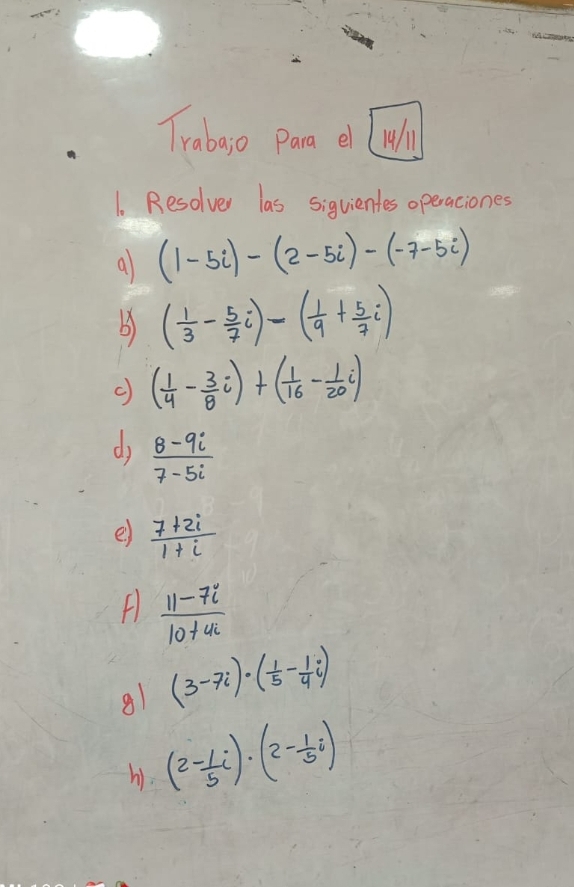 Trabajo Para el 14/11
1. Resolver las siguientes operaciones
a) (1-5i) - (2-5i) - (-7-5i)
b) (1/3 - 5/7 i) - (1/9 + 5/7 i)
c) (1/4 - 3/8 i) + (1/16 - 1/20 i)
d) 8-9i / 7-5i
e) 7+2i / 1+i
f) 11-7i / 10+4i
g) (3-7i)·(1/5 - 1/4 i)
h) (2 - 1/5 i)·(2 - 1/5 i)